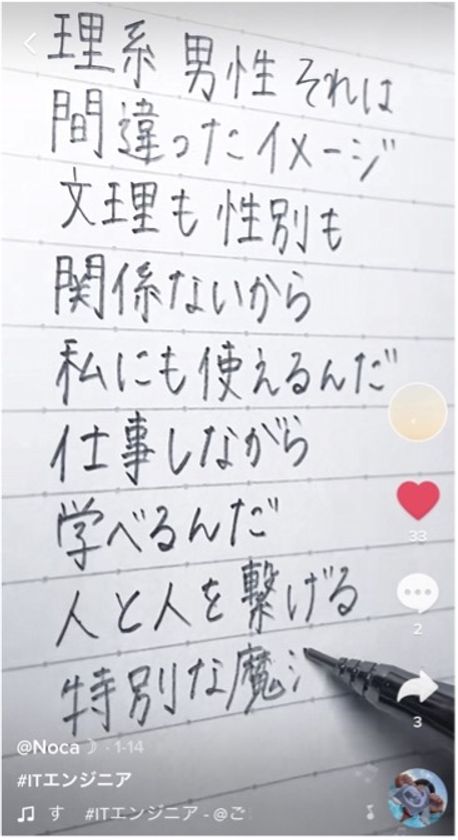 理系 男性 それは
間違ったイメージ
文理も 性別も
関係ないから
私にも使えるんだ"
仕事しながら
学べるんだ"
人と人を繋げる
特別な魔
33
2
3
@Noca☽ · 1-14
#ITエンジニア
す #ITエンジニア - @ご